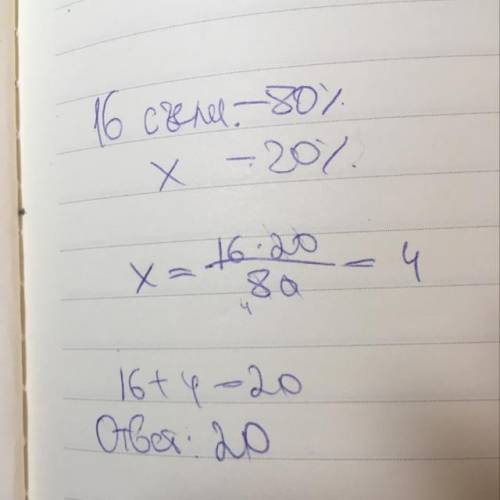 16 съели. – 80%.
x – 20%.
x = 16 · 20 / 80 = 4
4
16 + 4 = 20
Ответ: 20